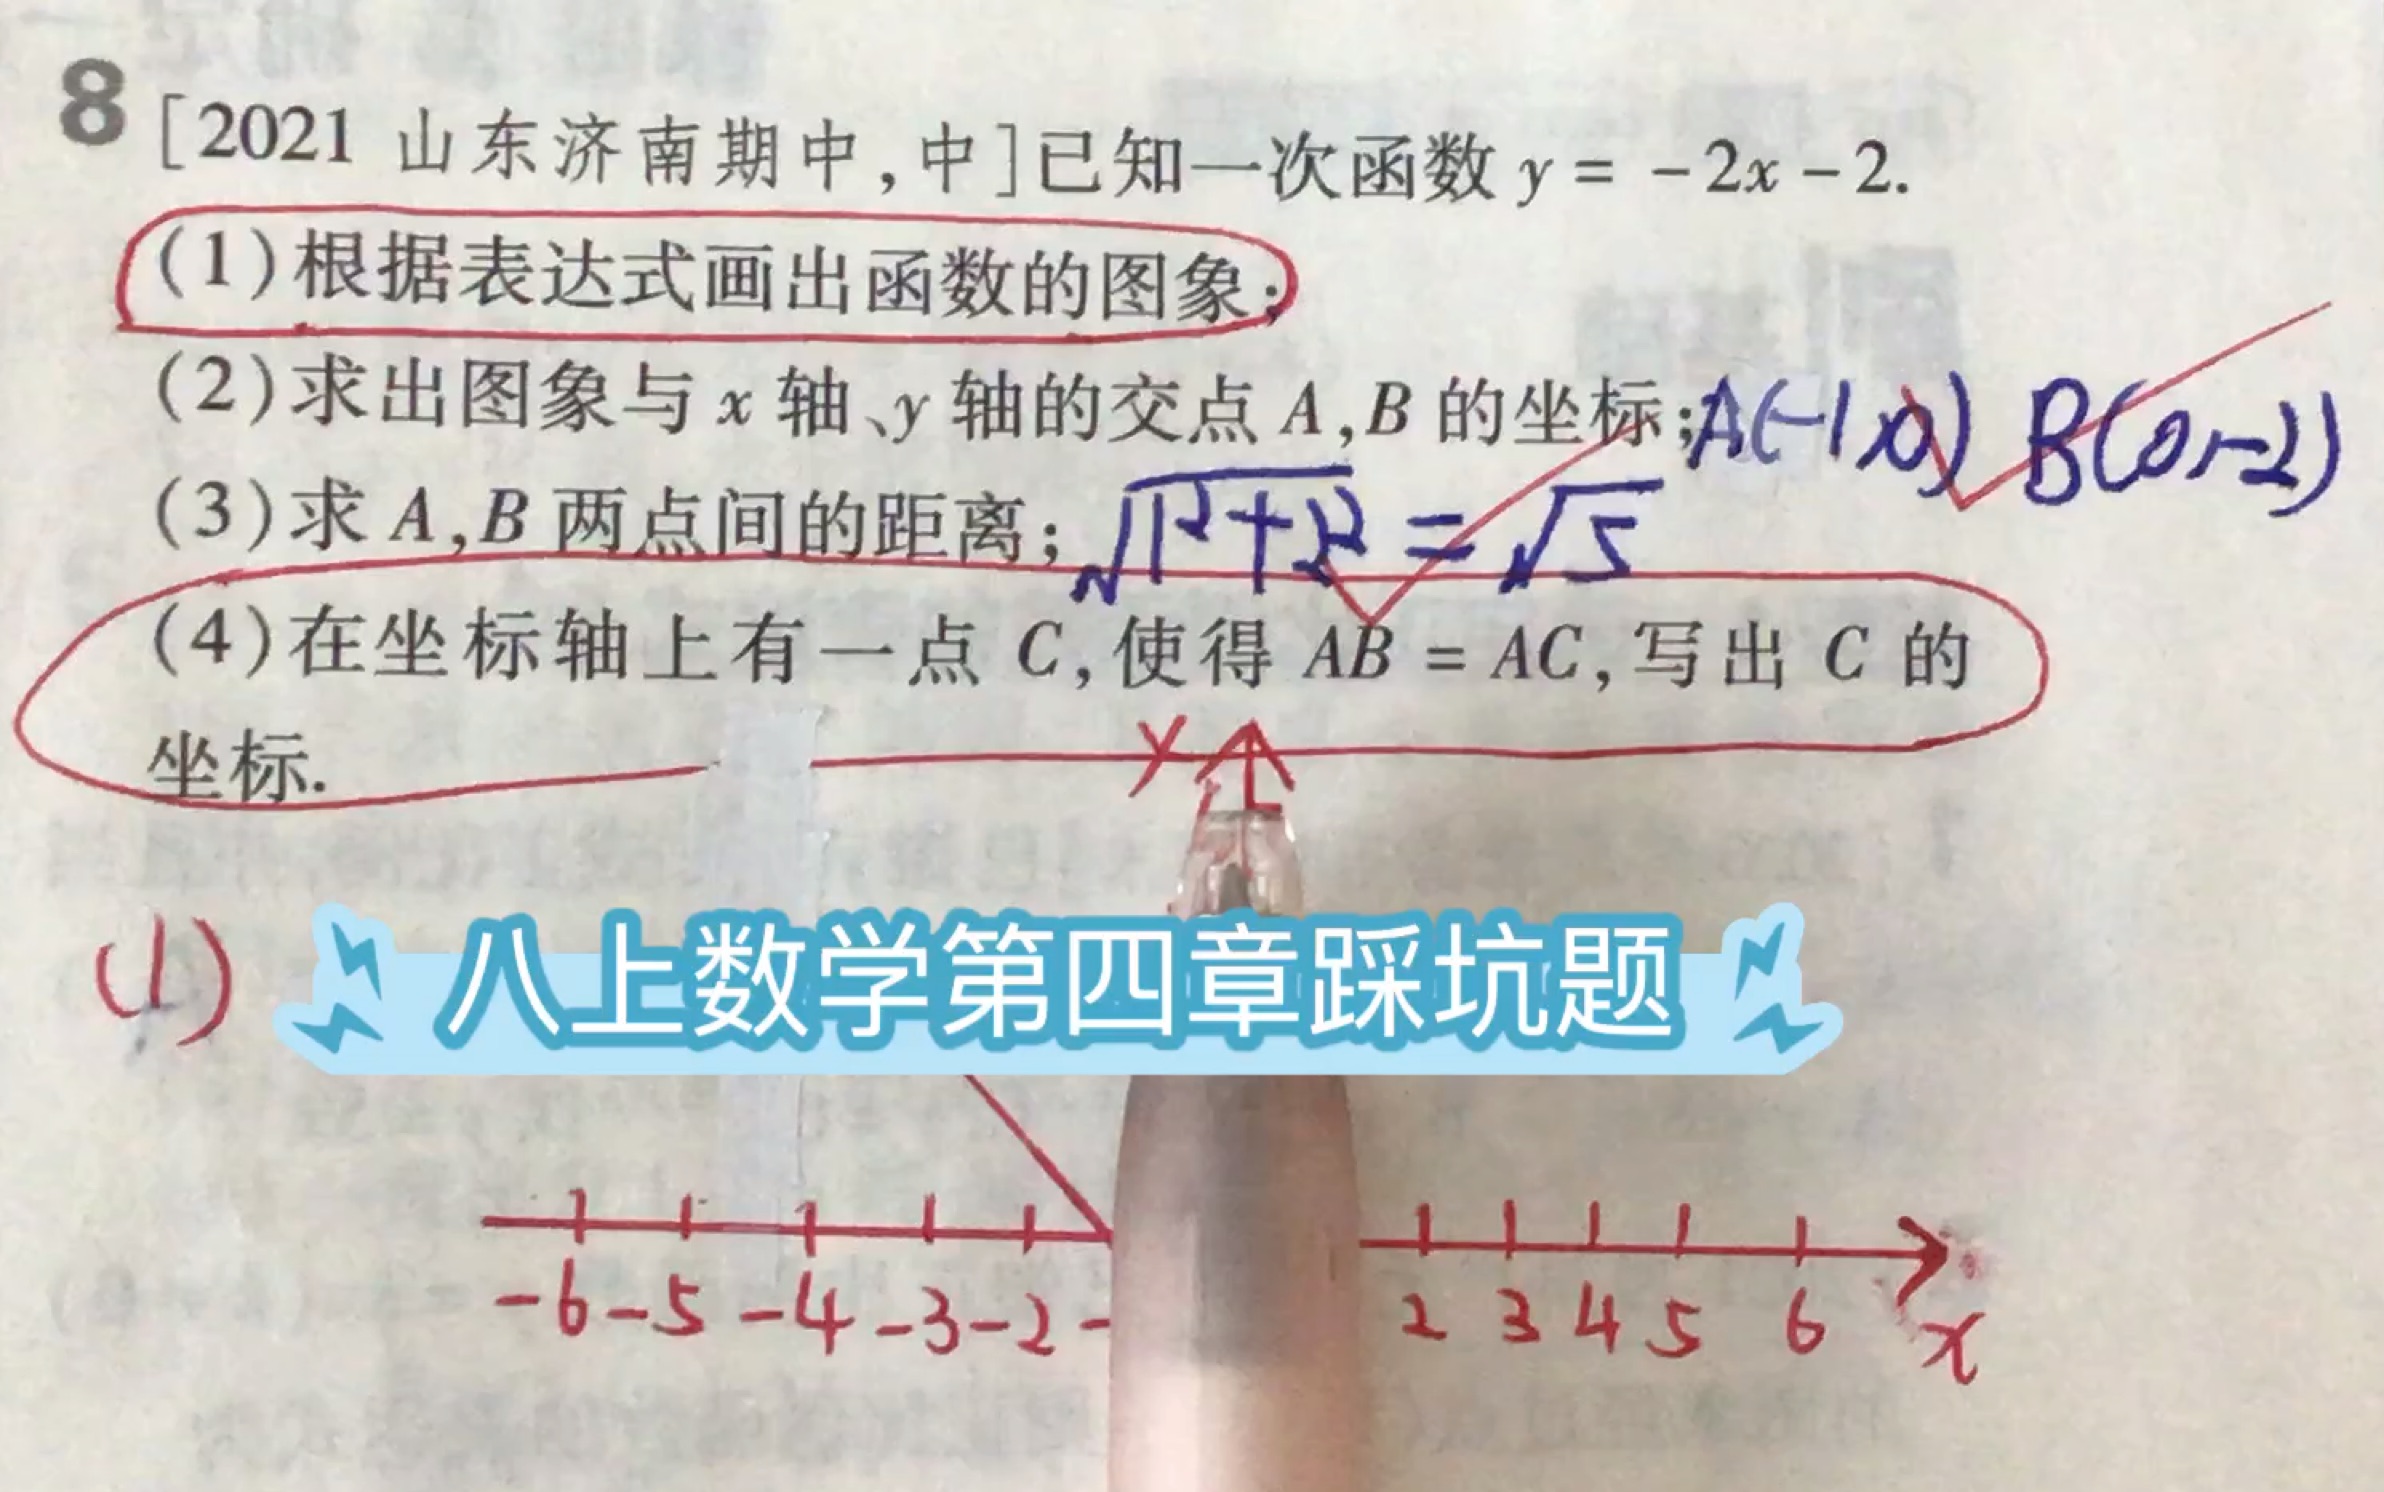 8 [2021 山东济南期中,中]已知一次函数 y = -2x-2.
(1)根据表达式画出函数的图象;
(2)求出图象与 x 轴、y 轴的交点 A,B 的坐标; A(-1,0) B(0,-2)
(3)求 A,B 两点间的距离; √1²+2² = √5
(4)在坐标轴上有一点 C,使得 AB = AC,写出 C 的
坐标.
y
(1)
八上数学第四章踩坑题
-6 -5 -4 -3 -2 - 2 3 4 5 6 x